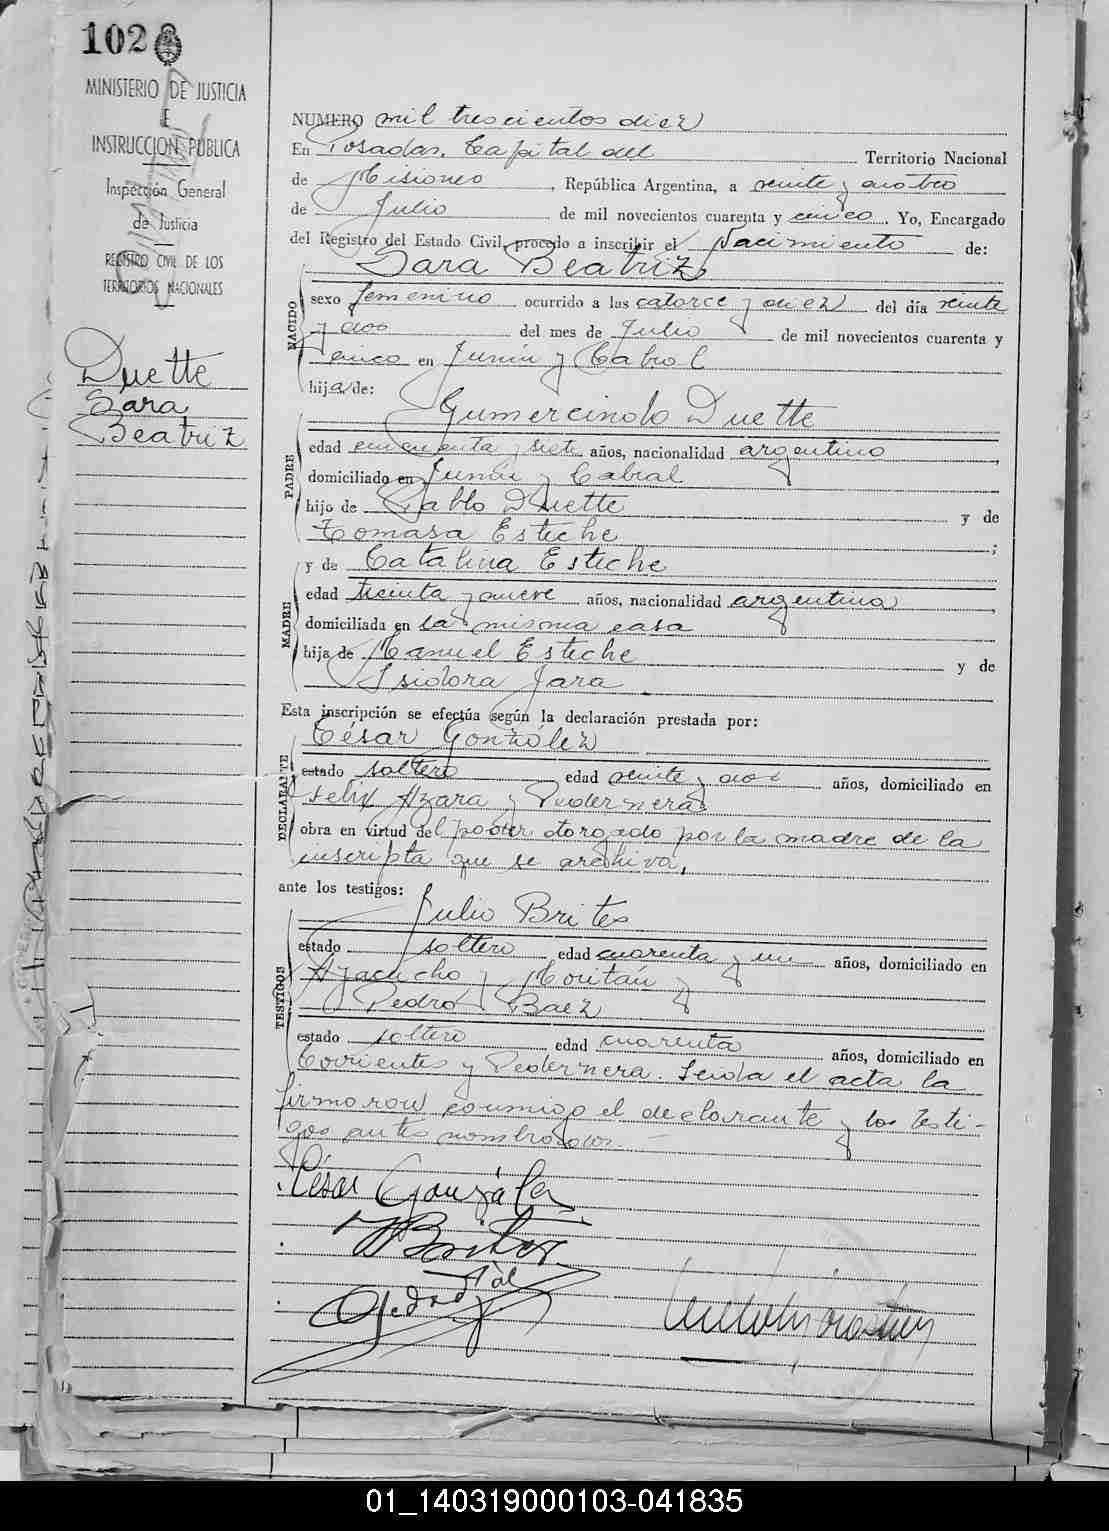 102
MINISTERIO DE JUSTICIA
E
INSTRUCCION PUBLICA
Inspección General
de Justicia
REGISTRO CIVIL DE LOS
TERRITORIOS NACIONALES
Duette
Sara
Beatriz
NUMERO mil trescientos diez
En Posadas, Capital del Territorio Nacional
de Misiones, República Argentina, a veinte y cuatro
de Julio de mil novecientos cuarenta y cinco. Yo, Encargado
del Registro del Estado Civil, procedo a inscribir el Nacimiento de:
Sara Beatriz
NACIDO
sexo femenino ocurrido a las catorce y diez del día veinte
y dos del mes de Julio de mil novecientos cuarenta y
cinco en Junín y Cabral
hija de:
Gumercindo Duette
PADRE
edad cincuenta y siete años, nacionalidad argentino,
domiciliado en Junín y Cabral
hijo de Pablo Duette y de
Tomasa Esteche;
y de Catalina Esteche
MADRE
edad treinta y nueve años, nacionalidad argentina,
domiciliada en la misma casa
hija de Manuel Esteche y de
Isidora Jara.
Esta inscripción se efectúa según la declaración prestada por:
César González
DECLARANTE
estado soltero edad veinte y dos años, domiciliado en
Felix Azara y Pedernera
obra en virtud del poder otorgado por la madre de la
inscripta que se archiva,
ante los testigos:
Julio Brites
TESTIGOS
estado soltero edad cuarenta y un años, domiciliado en
Ayacucho y Moritán y
Pedro Baez
estado soltero edad cuarenta años, domiciliado en
Corrientes y Pedernera. Leída el acta la
firmaron conmigo el declarante y los testi-
gos antes nombrados.
César González
Brites
01_140319000103-041835